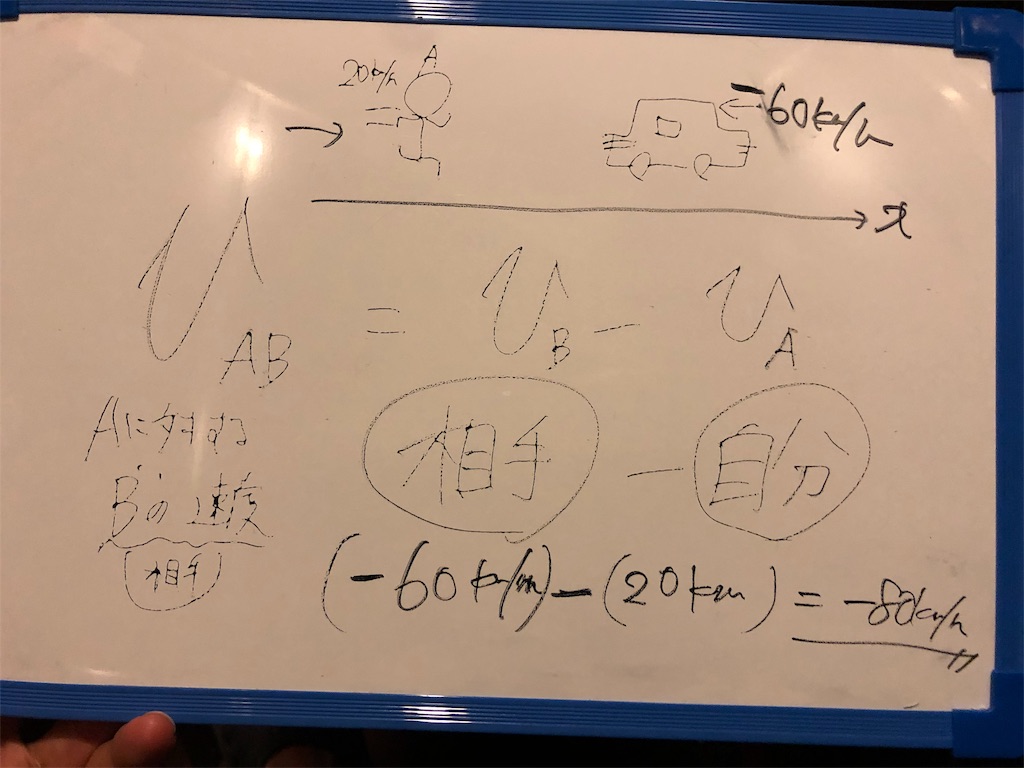 A
20km/h
-60km/h
x
V_AB = V_B - V_A
Aに対する
Bの速度
(相手)
相手 - 自分
(-60km/h) - (20km) = -80km/h